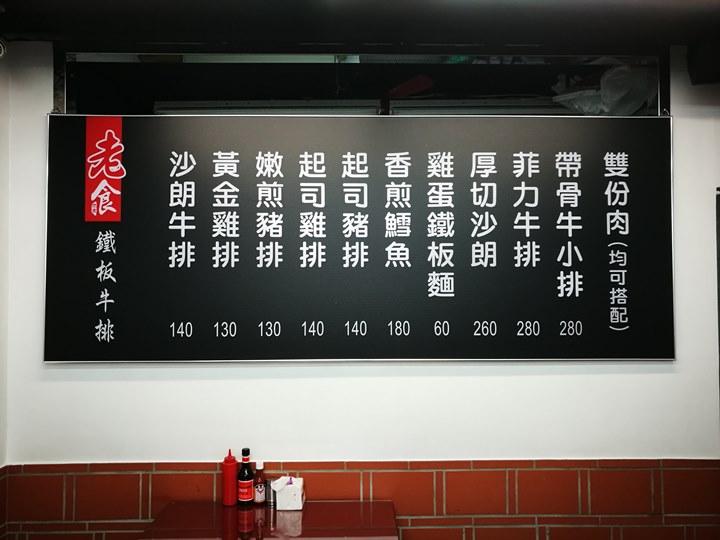 雙份肉(均可搭配)
帶骨牛小排 280
菲力牛排 280
厚切沙朗 260
雞蛋鐵板麵 60
香煎鱈魚 180
起司豬排 140
起司雞排 140
嫩煎豬排 130
黃金雞排 130
沙朗牛排 140
老食
鐵板牛排